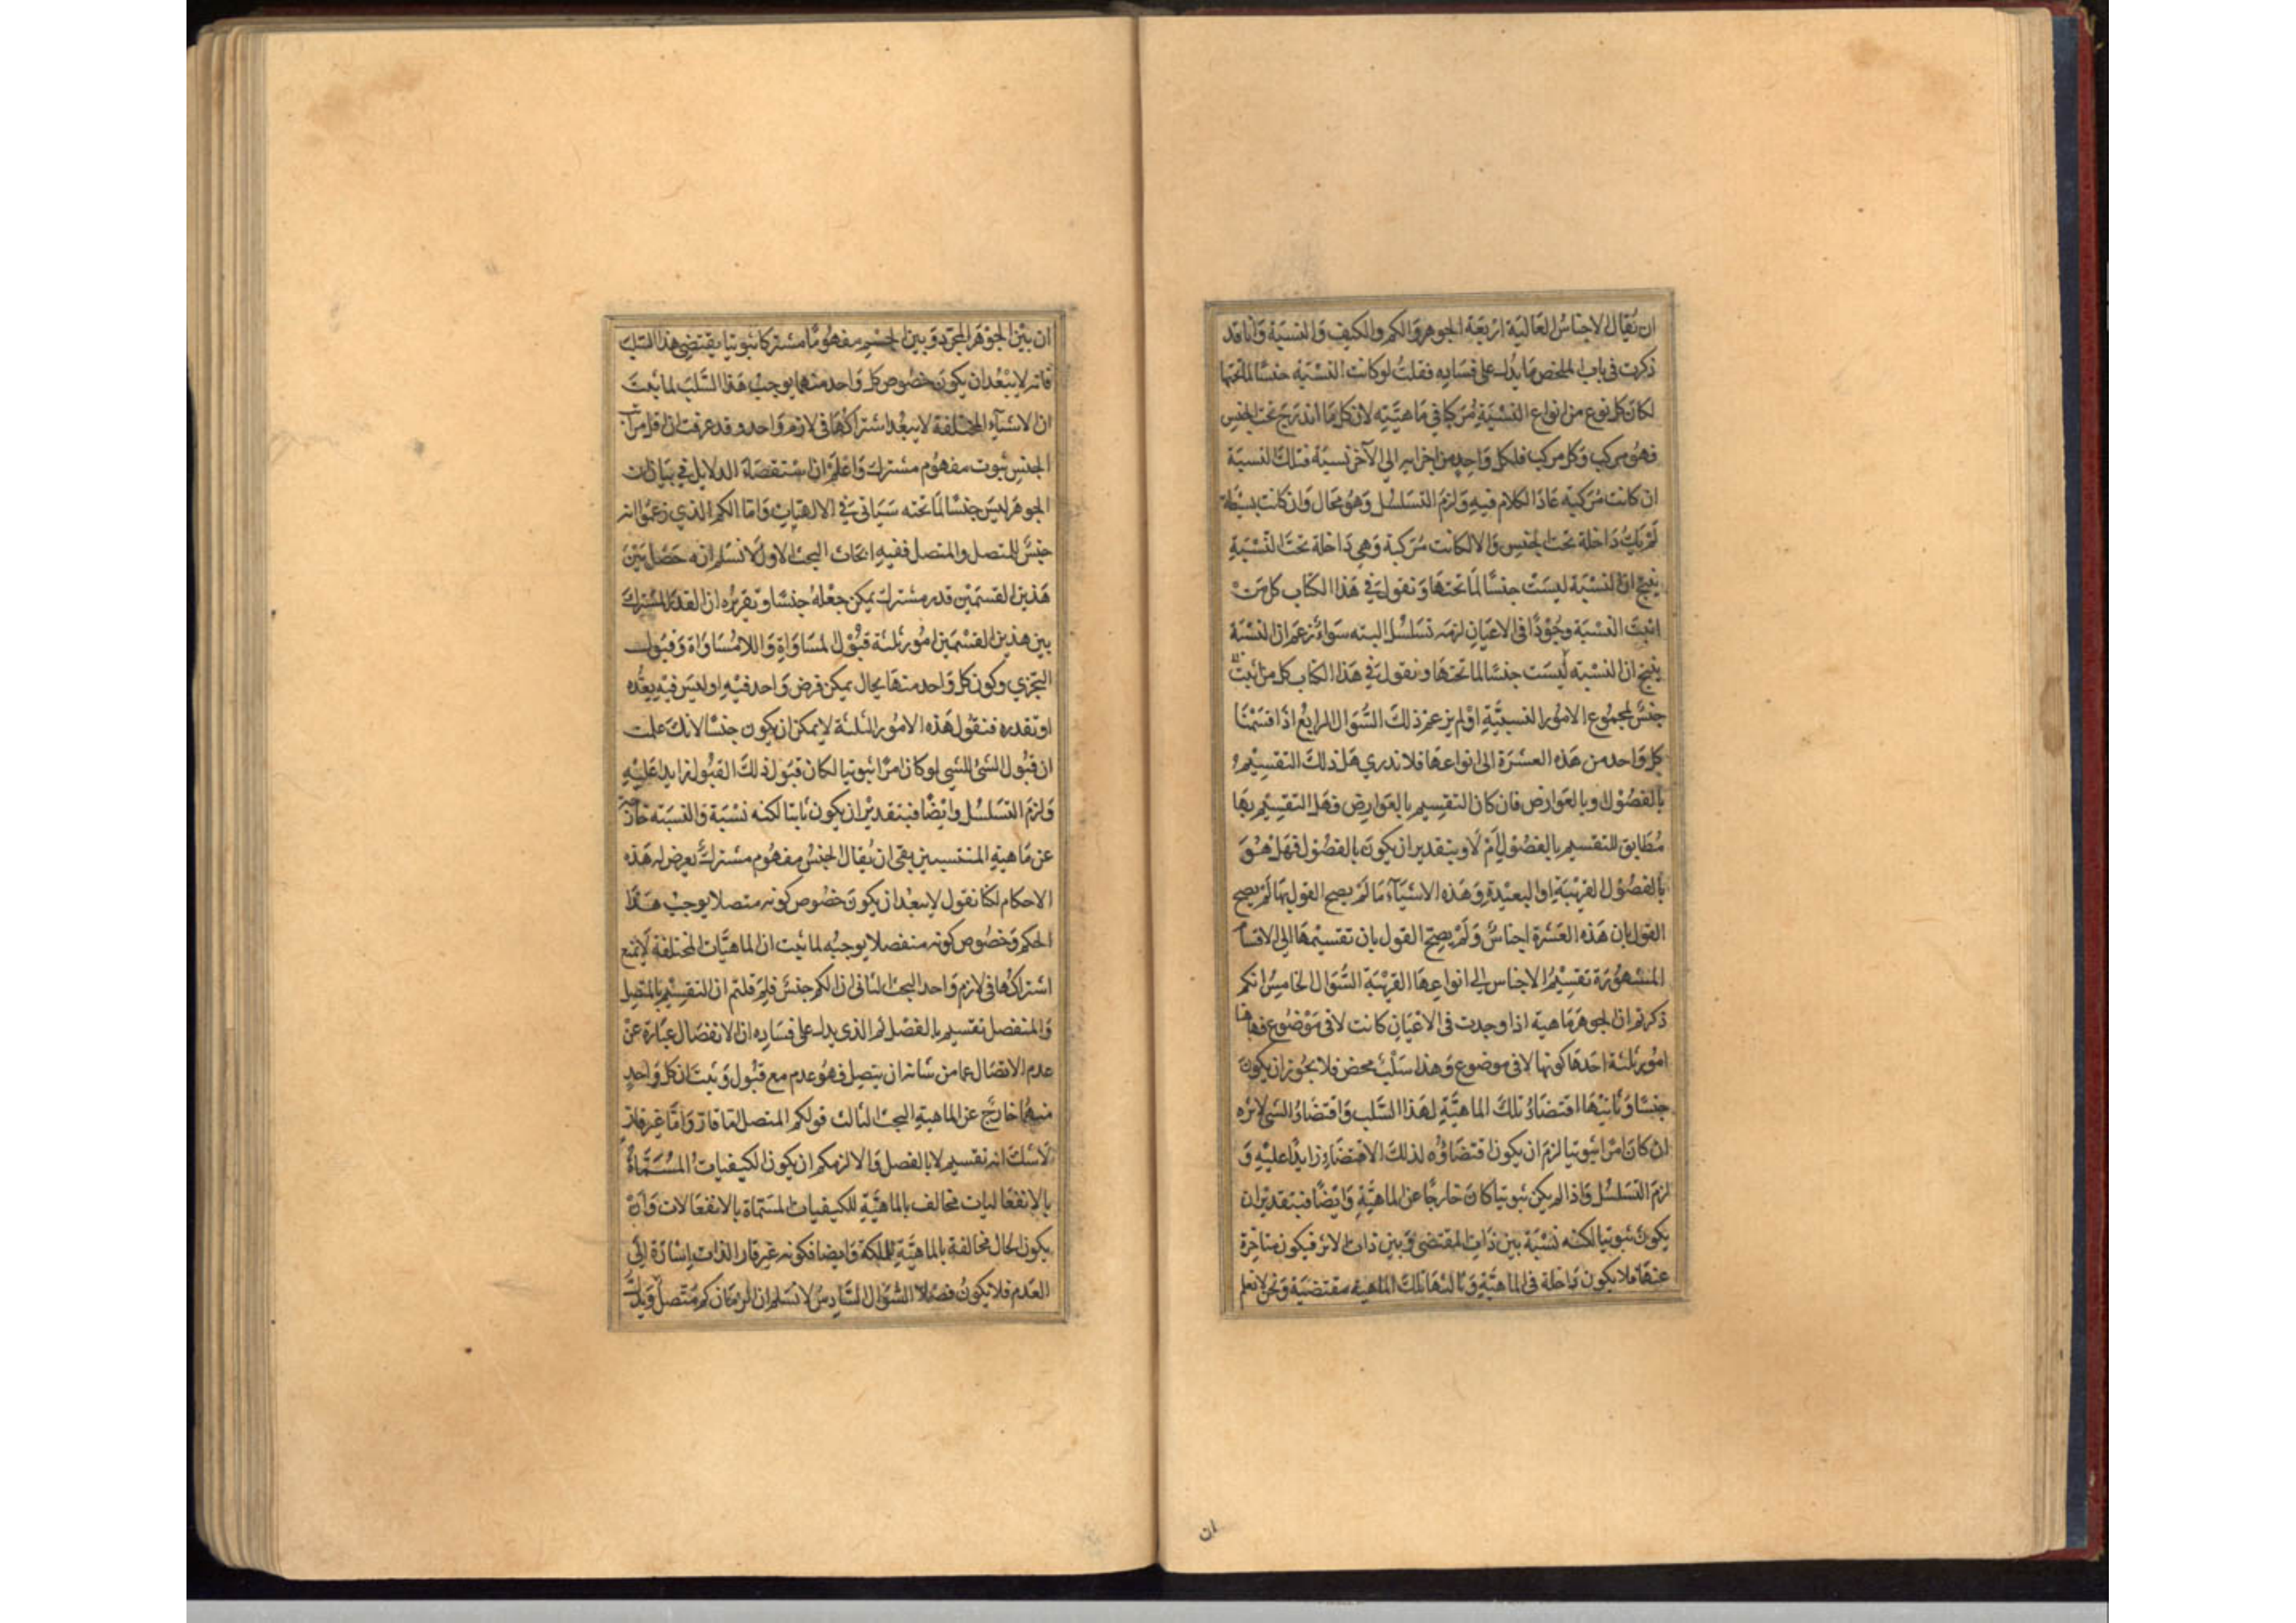 ان يُقال الاجناس العالية اربعة الجوهر والكم والكيف والنسبة وانا قد
ذكرت في باب الملخص ما يدل على فساده فقلت لو كانت النسبة جنسًا لما تحتها
لكان كل نوع من انواع النسبة مركبا في ماهيته لان كل ما اندرج تحت الجنس
فهو مركب وكل مركب فلكل واحد من اجزايه الى الآخر نسبة فتلك النسبة
ان كانت مركبة عاد الكلام فيه ولزم التسلسل وهو محال وان كانت بسيطة
لم تك داخلة تحت الجنس والا لكانت مركبة وهي داخلة تحت النسبة
ينتج ان النسبة ليست جنسًا لما تحتها ونقول في هذا الكتاب كل من
اثبت النسبة وجودًا في الاعيان لزمه تسلسل البته سواء زعم ان النسبة
ينتج ان النسبة ليست جنسًا لما تحتها ونقول في هذا الكتاب كل من اثبت
جنس لمجموع الامور النسبية او لم يزعم ذلك السؤال الرابع اذا قسمنا
كل واحد من هذه العشرة الى انواعها فلا ندري هل ذلك التقسيم
بالفصول وبالعوارض فان كان التقسيم بالعوارض فهل التقسيم بها
مطابق للتقسيم بالفصول ام لا وبتقدير ان يكون بالفصول فهل هو
بالفصول القريبة او البعيدة وهذه الاشياء ما لم يصح القول بها لم يصح
القول بان هذه العشرة اجناس ولم يصح القول بان تقسيمها الى الاقسام
المشهورة تقسيم الاجناس الى انواعها القريبة السؤال الخامس انكم
ذكرتم ان الجوهر ماهية اذا وجدت في الاعيان كانت لا في موضوع فهاهنا
امور ثلثة احدها كونها لا في موضوع وهذا سلب محض فلا يجوز ان يكون
جنسًا وثانيها اقتضاء تلك الماهية لهذا السلب واقتضاء الشي لاثره
ان كان امرا ثبوتيا لزم ان يكون اقتضاؤه لذلك الاقتضاء زايدا عليه و
لزم التسلسل واذا لم يكن ثبوتيا كان خارجا عن الماهية وايضا فبتقدير ان
يكون ثبوتيا لكنه نسبة بين ذات المقتضى وبين ذات الاثر فيكون متاخرة
عنها فلا يكون داخلة في الماهية وثالثها تلك الماهية مقتضية ونحن لا نعلم
ان
ان بين الجوهر المجرد وبين الجسم مفهوما مشتركا ثبوتيا يقتضى هذا السلب
فانه لا يبعد ان يكون خصوص كل واحد منهما يوجب هذا السلب لما ثبت
ان الاشياء المختلفة لا يبعد اشتراكها في لازم واحد وقد عرفت ان اقل مراتب
الجنس ثبوت مفهوم مشترك واعلم ان استقصاء الدلايل في بيان ان
الجوهر ليس جنسًا لما تحته سياتى في الالهيات واما الكم الذي زعموا انه
جنس للمتصل والمنفصل ففيه ابحاث البحث الاول لا نسلم انه حصل بين
هذين القسمين قدر مشترك يمكن جعله جنسا وتقريره ان القدر المشترك
بين هذين القسمين امور ثلثة قبول المساواة واللامساواة وقبول
التجزي وكون كل واحد منها بحال يمكن فرض واحد فيه او ليس فيه يعده
او تقدره فنقول هذه الامور الثلثة لا يمكن ان يكون جنسا لانك علمت
ان قبول الشئ للشي لو كان امرًا ثبوتيا لكان قبول ذلك القبول زايدا عليه
ولزم التسلسل وايضًا فبتقدير ان يكون ثابتا لكنه نسبة والنسبة خارجة
عن ماهية المنتسبين بقى ان يُقال الجنس مفهوم مشترك يعرض له هذه
الاحكام لكنا نقول لا يبعد ان يكون خصوص كونه متصلا يوجب هذا
الحكم وخصوص كونه منفصلا يوجبه لما ثبت ان الماهيات المختلفة لا يمتنع
اشتراكها في لازم واحد البحث الثاني ان الكم جنس فلم قلتم ان التقسيم بالمتصل
والمنفصل تقسيم بالفصل ثم الذى يدل على فساده ان الانفصال عبارة عن
عدم الاتصال عما من شانه ان يتصل فهو عدم مع قبول وثبت ان كل واحد
منهما خارج عن الماهية البحث الثالث قولكم المتصل اما قار واما غير قار
لا شك انه تقسيم لا بالفصل والا لزمكم ان يكون الكيفيات المسماة
بالانفعاليات مخالف بالماهية للكيفيات المسماة بالانفعالات وان
يكون الحال مخالفة بالماهية للملكة وايضا فكونه غير قار الذات اشارة الى
العدم فلا يكون فصلا السؤال السادس لا نسلم ان الزمان كم متصل ويدل